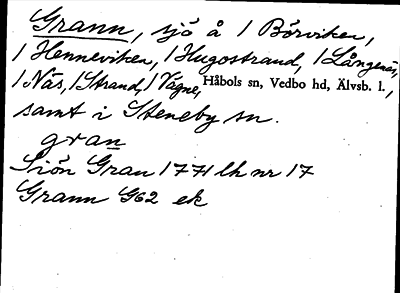 Grann, sjö å / Börviken,
/ Henneviken, / Hugostrand, / Långenäs,
/ Näs, / Strand, / Vägne, Håbols sn, Vedbo hd, Älvsb. l.,
samt i Steneby sn.
gran
Siön Gran 1771 lh nr 17
Grann G62 ek